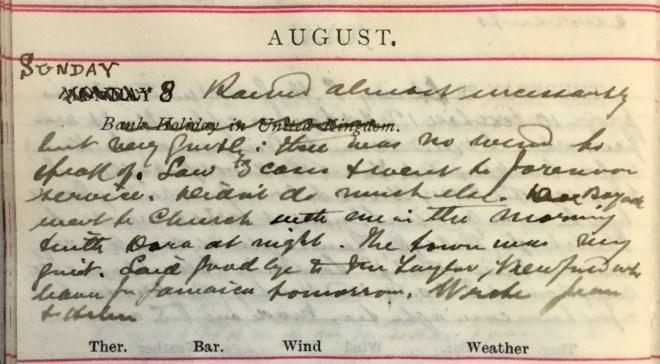 AUGUST.
SUNDAY
MONDAY 8 Rained almost incessantly
Bank Holiday in United Kingdom.
but very quietly: there was no wind to
speak of. Saw 3 cases & went to forenoon
service. Didn't do much else.
went to Church with me in the morning
& with Dora at night. The town was very
quiet. Said goodbye to Mr Taylor, who
leave for Jamaica tomorrow. Wrote Jean
& Helen
Ther. Bar. Wind Weather